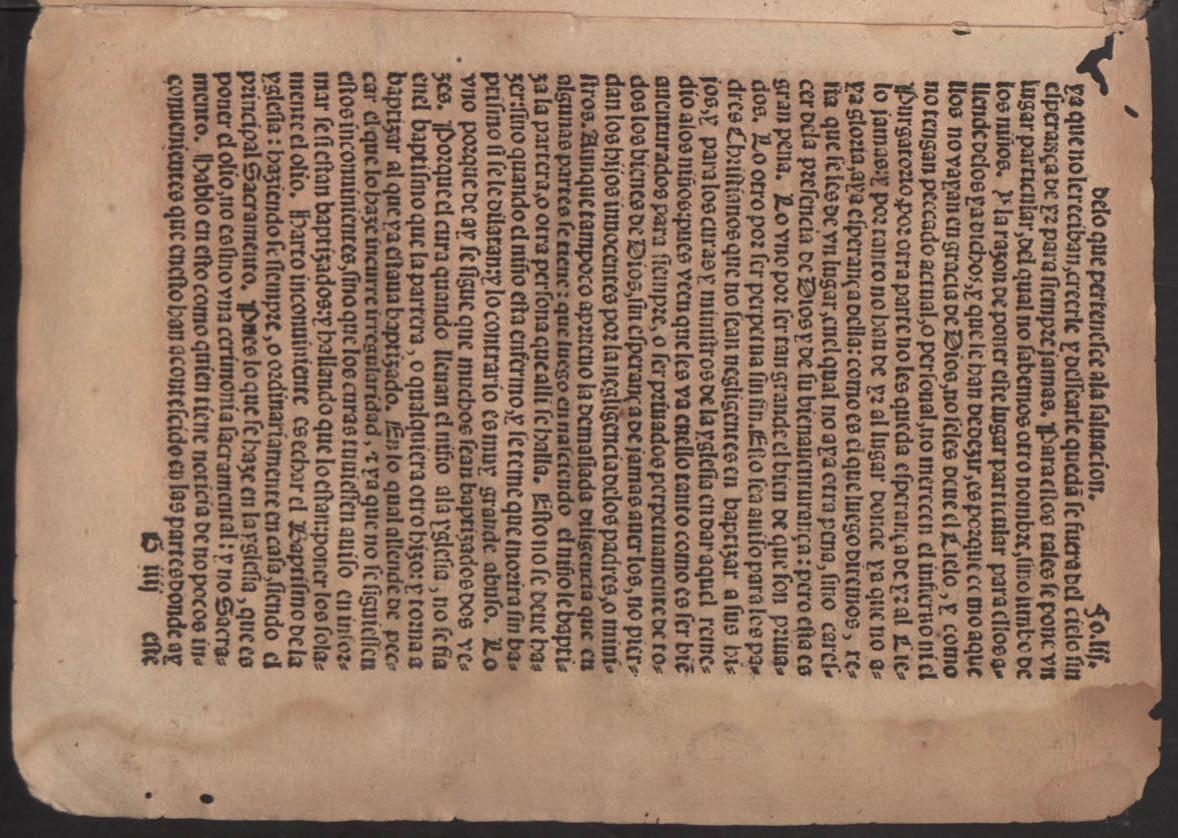 delo que pertenesce ala saluacion. Fo.lij.
ya que no le reciban, creerle y dessearle quedā se fuera del cielo sin
esperāça de yr para siempre jamas. Para estos tales se pone vn
lugar particular, del qual no sabemos otro nombre, sino limbo de
los niños. Y la razon de poner este lugar particular para ellos a-
liende delos ya dicho, y que le han de dezir, es porque como aque
llos no vayan en gracia de Dios, no seles deue el Cielo, y como
no tengan peccado actual, o personal, no merecen el infierno ni el
Purgatorio: por otra parte no les queda esperança de yr al Cie-
lo jamas: y por tanto no han de yr al lugar donde ya que no a-
ya gloria, aya esperança della: como es el que luego diremos, re-
sta que se les de vn lugar, en el qual no aya otra pena, sino caresс-
cer dela presencia de Dios y de su bienauenturança: pero esta es
gran pena. Lo vno por ser tan grande el bien de que son priua-
dos. Lo otro por ser perpetua sin fin. Esto sea auiso para los pa-
dres Christianos que no sean negligentes en baptizar a sus hi-
jos, y para los curas y ministros de la yglesia en dar aquel reme-
dio alos niños: pues veen que les va enello tanto como es ser biē
auenturados para siempre, o ser priuados perpetuamente de to-
dos los bienes de Dios, sin esperança de jamas auer los, no pier-
dan los hijos innocentes por la negligencia delos padres, o mini-
stros. Aunque tampoco aprueuo la demasiada diligencia que en
algunas partes se tiene: que luego en nasciendo el niño le bapti-
za la partera, o otra persona que alli se halla. Esto no se deue ha-
zer: sino quando el niño esta enfermo, y se teme que morira sin ba-
ptismo si se le dilatan: y lo contrario es muy grande abuso. Lo
vno porque de ay se sigue que muchos sean baptizados dos ve-
zes. Porque el cura quando lleuan el niño ala yglesia, no se fia
enel baptismo que la partera, o qualquiera otro hizo: y torna a
baptizar al que ya estaua baptizado. En lo qual aliende de pec-
car el que lo haze incurre irregularidad, z ya que no se siguiessen
estos incomuinientes, sino que los curas tuuiessen auiso en infor-
mar se si eston baptizados: y hallando que lo estan: poner los sola-
mente el olio. Harto inconuiniente es echar el Baptismo de la
yglesia: haziendo le siempre, o ordinariamente en casa, siendo el
principal Sacramento. Pues lo que se haze en la yglesia, que es
poner el olio, no es sino vna cerimonia sacramental: y no Sacra-
mento. Hablo en esto como quien tiene noticia de no pocos in-
conuenientes que enesto han acontescido en las partes donde ay
G iiij este